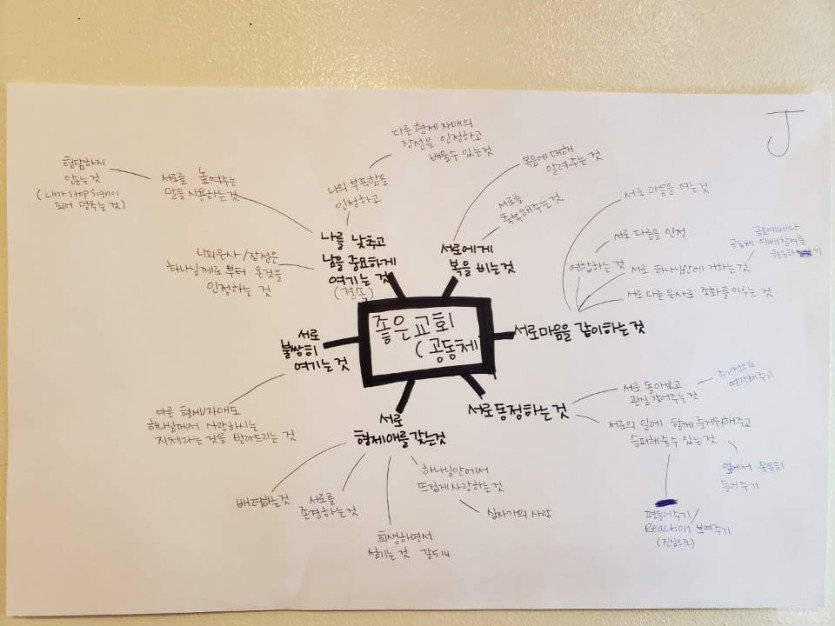 J
좋은교회
(공동체)
나를 낮추고
남을 중요하게
여기는 것
(겸손)
다른 형제 자매의
장점을 인정하고
배울수 있는것
나의 부족함을
인정하고
서로를 높여주는
말을 사용하는것
험담하지
않는것
나의 은사/장점은
하나님께로 부터 온것을
인정하는 것
서로에게
복을 비는것
복음에 대해
알려주는 것
서로를
축복해주는것
서로마음을 같이하는것
서로 마음을 여는것
서로 다름을 인정
연합하는 것
서로 하나님안에 거하는것
서로 다른 은사로 조화를 이루는 것
서로동정하는것
서로 돌아보고
관심 갖어주는 것
주기적으로
연락해주기
서로의 일에 함께 즐거워해주고
슬퍼해줄수 있는것
옆에서 묵묵히
들어주기
편들어주기/
Reaction 보여주기
(진심으로)
서로
형제애를갖는것
하나님안에서
뜨겁게 사랑하는것
십자가의 사랑
희생하면서
섬기는것
서로를
존경하는것
배려하는것
서로
불쌍히
여기는것
다른 형제/자매도
하나님께서 사랑하시는
지체라는것을 받아드리는 것